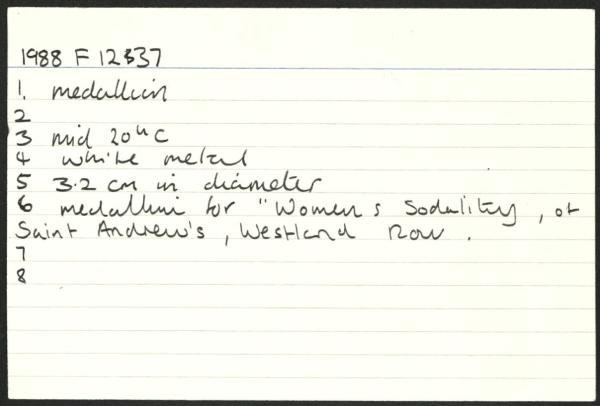 1988 F 12337
1. medallion
2
3 mid 20th C
4 white metal
5 3.2 cm in diameter
6 medallion for "Women s Sodality, of
Saint Andrew's, Westland Row.
7
8